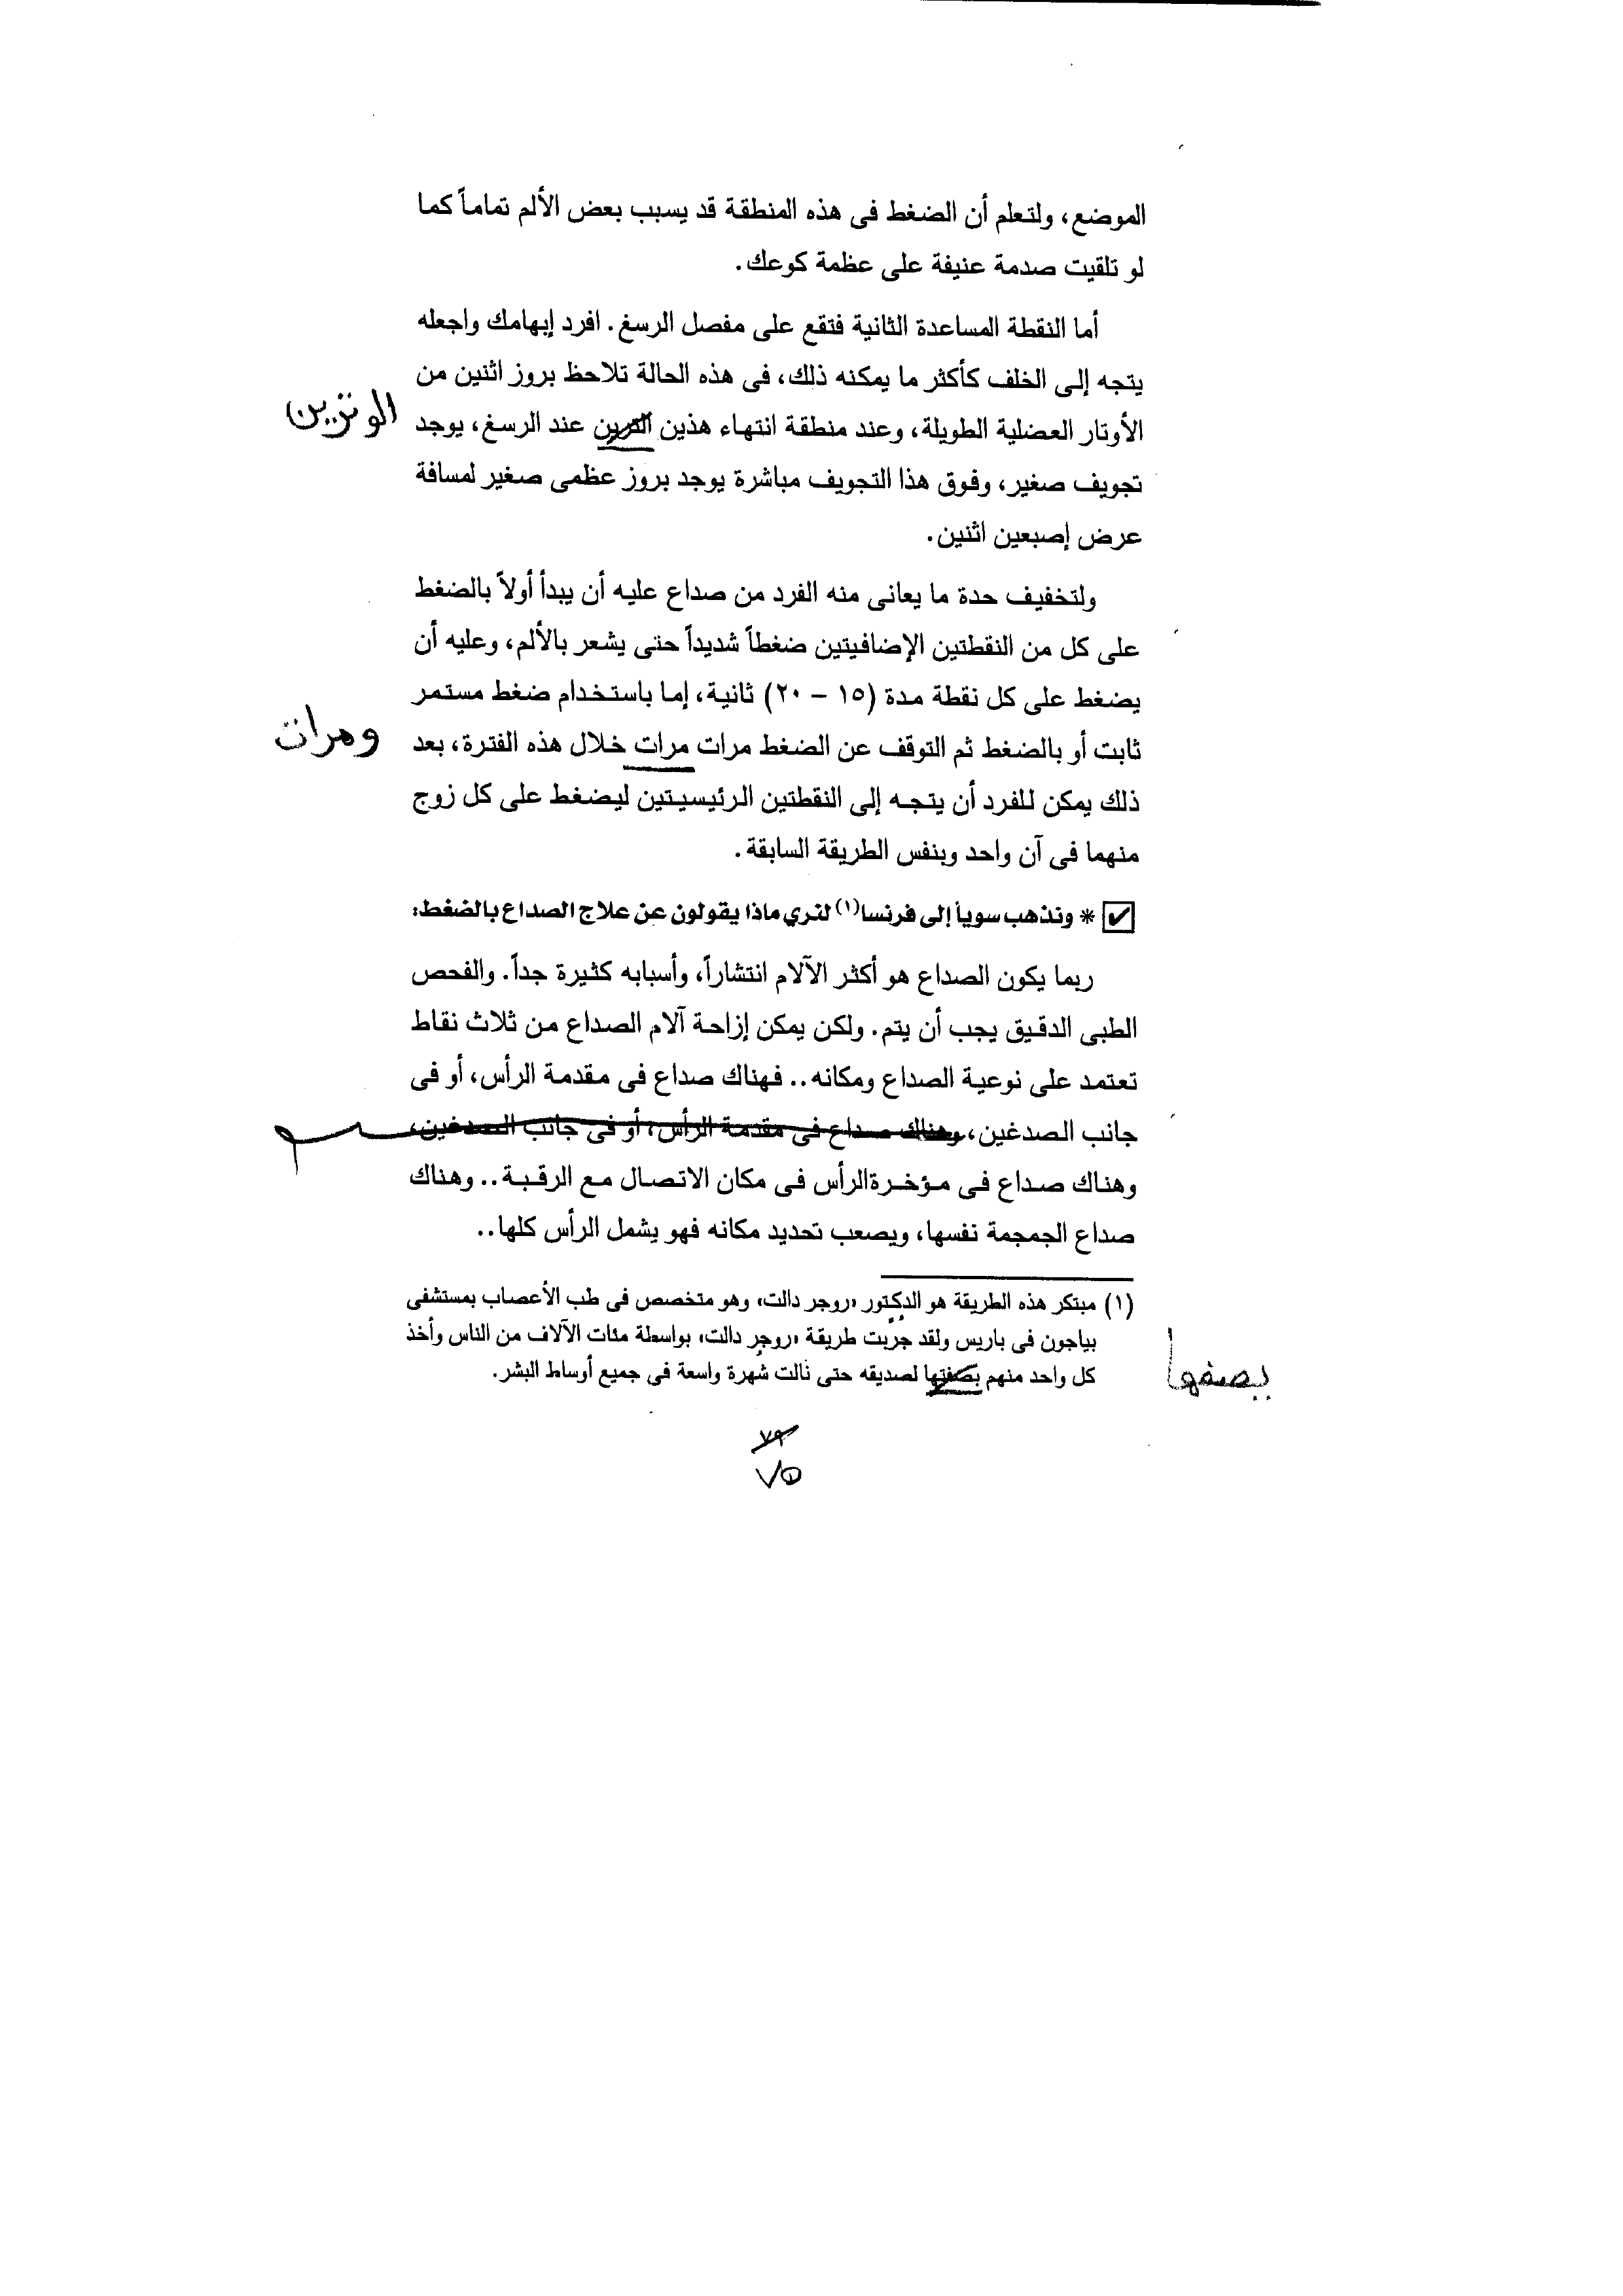 الموضع، ولتعلم أن الضغط فى هذه المنطقة قد يسبب بعض الألم تماماً كما
لو تلقيت صدمة عنيفة على عظمة كوعك.
أما النقطة المساعدة الثانية فتقع على مفصل الرسغ. افرد إبهامك واجعله
يتجه إلى الخلف كأكثر ما يمكنه ذلك، فى هذه الحالة تلاحظ بروز اثنين من
الأوتار العضلية الطويلة، وعند منطقة انتهاء هذين عند الرسغ، يوجد
الوترين
تجويف صغير، وفوق هذا التجويف مباشرة يوجد بروز عظمى صغير لمسافة
عرض إصبعين اثنين.
ولتخفيف حدة ما يعانى منه الفرد من صداع عليه أن يبدأ أولاً بالضغط
على كل من النقطتين الإضافيتين ضغطاً شديداً حتى يشعر بالألم، وعليه أن
يضغط على كل نقطة مدة (١٥ – ٢٠) ثانية، إما باستخدام ضغط مستمر
ثابت أو بالضغط ثم التوقف عن الضغط مرات مرات خلال هذه الفترة، بعد
ومرات
ذلك يمكن للفرد أن يتجه إلى النقطتين الرئيسيتين ليضغط على كل زوج
منهما فى آن واحد وبنفس الطريقة السابقة.
* ونذهب سوياً إلى فرنسا(١) لنري ماذا يقولون عن علاج الصداع بالضغط:
ربما يكون الصداع هو أكثر الآلام انتشاراً، وأسبابه كثيرة جداً. والفحص
الطبى الدقيق يجب أن يتم. ولكن يمكن إزاحة آلام الصداع من ثلاث نقاط
تعتمد على نوعية الصداع ومكانه.. فهناك صداع فى مقدمة الرأس، أو فى
جانب الصدغين، وهناك صداع فى مقدمة الرأس، أو فى جانب الصدغين،
وهناك صداع فى مؤخرة الرأس فى مكان الاتصال مع الرقبة.. وهناك
صداع الجمجمة نفسها، ويصعب تحديد مكانه فهو يشمل الرأس كلها..
(١) مبتكر هذه الطريقة هو الدكتور «روجر دالت» وهو متخصص فى طب الأعصاب بمستشفى
بياجون فى باريس ولقد جربت طريقة «روجر دالت» بواسطة مئات الآلاف من الناس وأخذ
كل واحد منهم بصفتها لصديقه حتى نالت شهرة واسعة فى جميع أوساط البشر.
يصفها
٧٩
٧٥